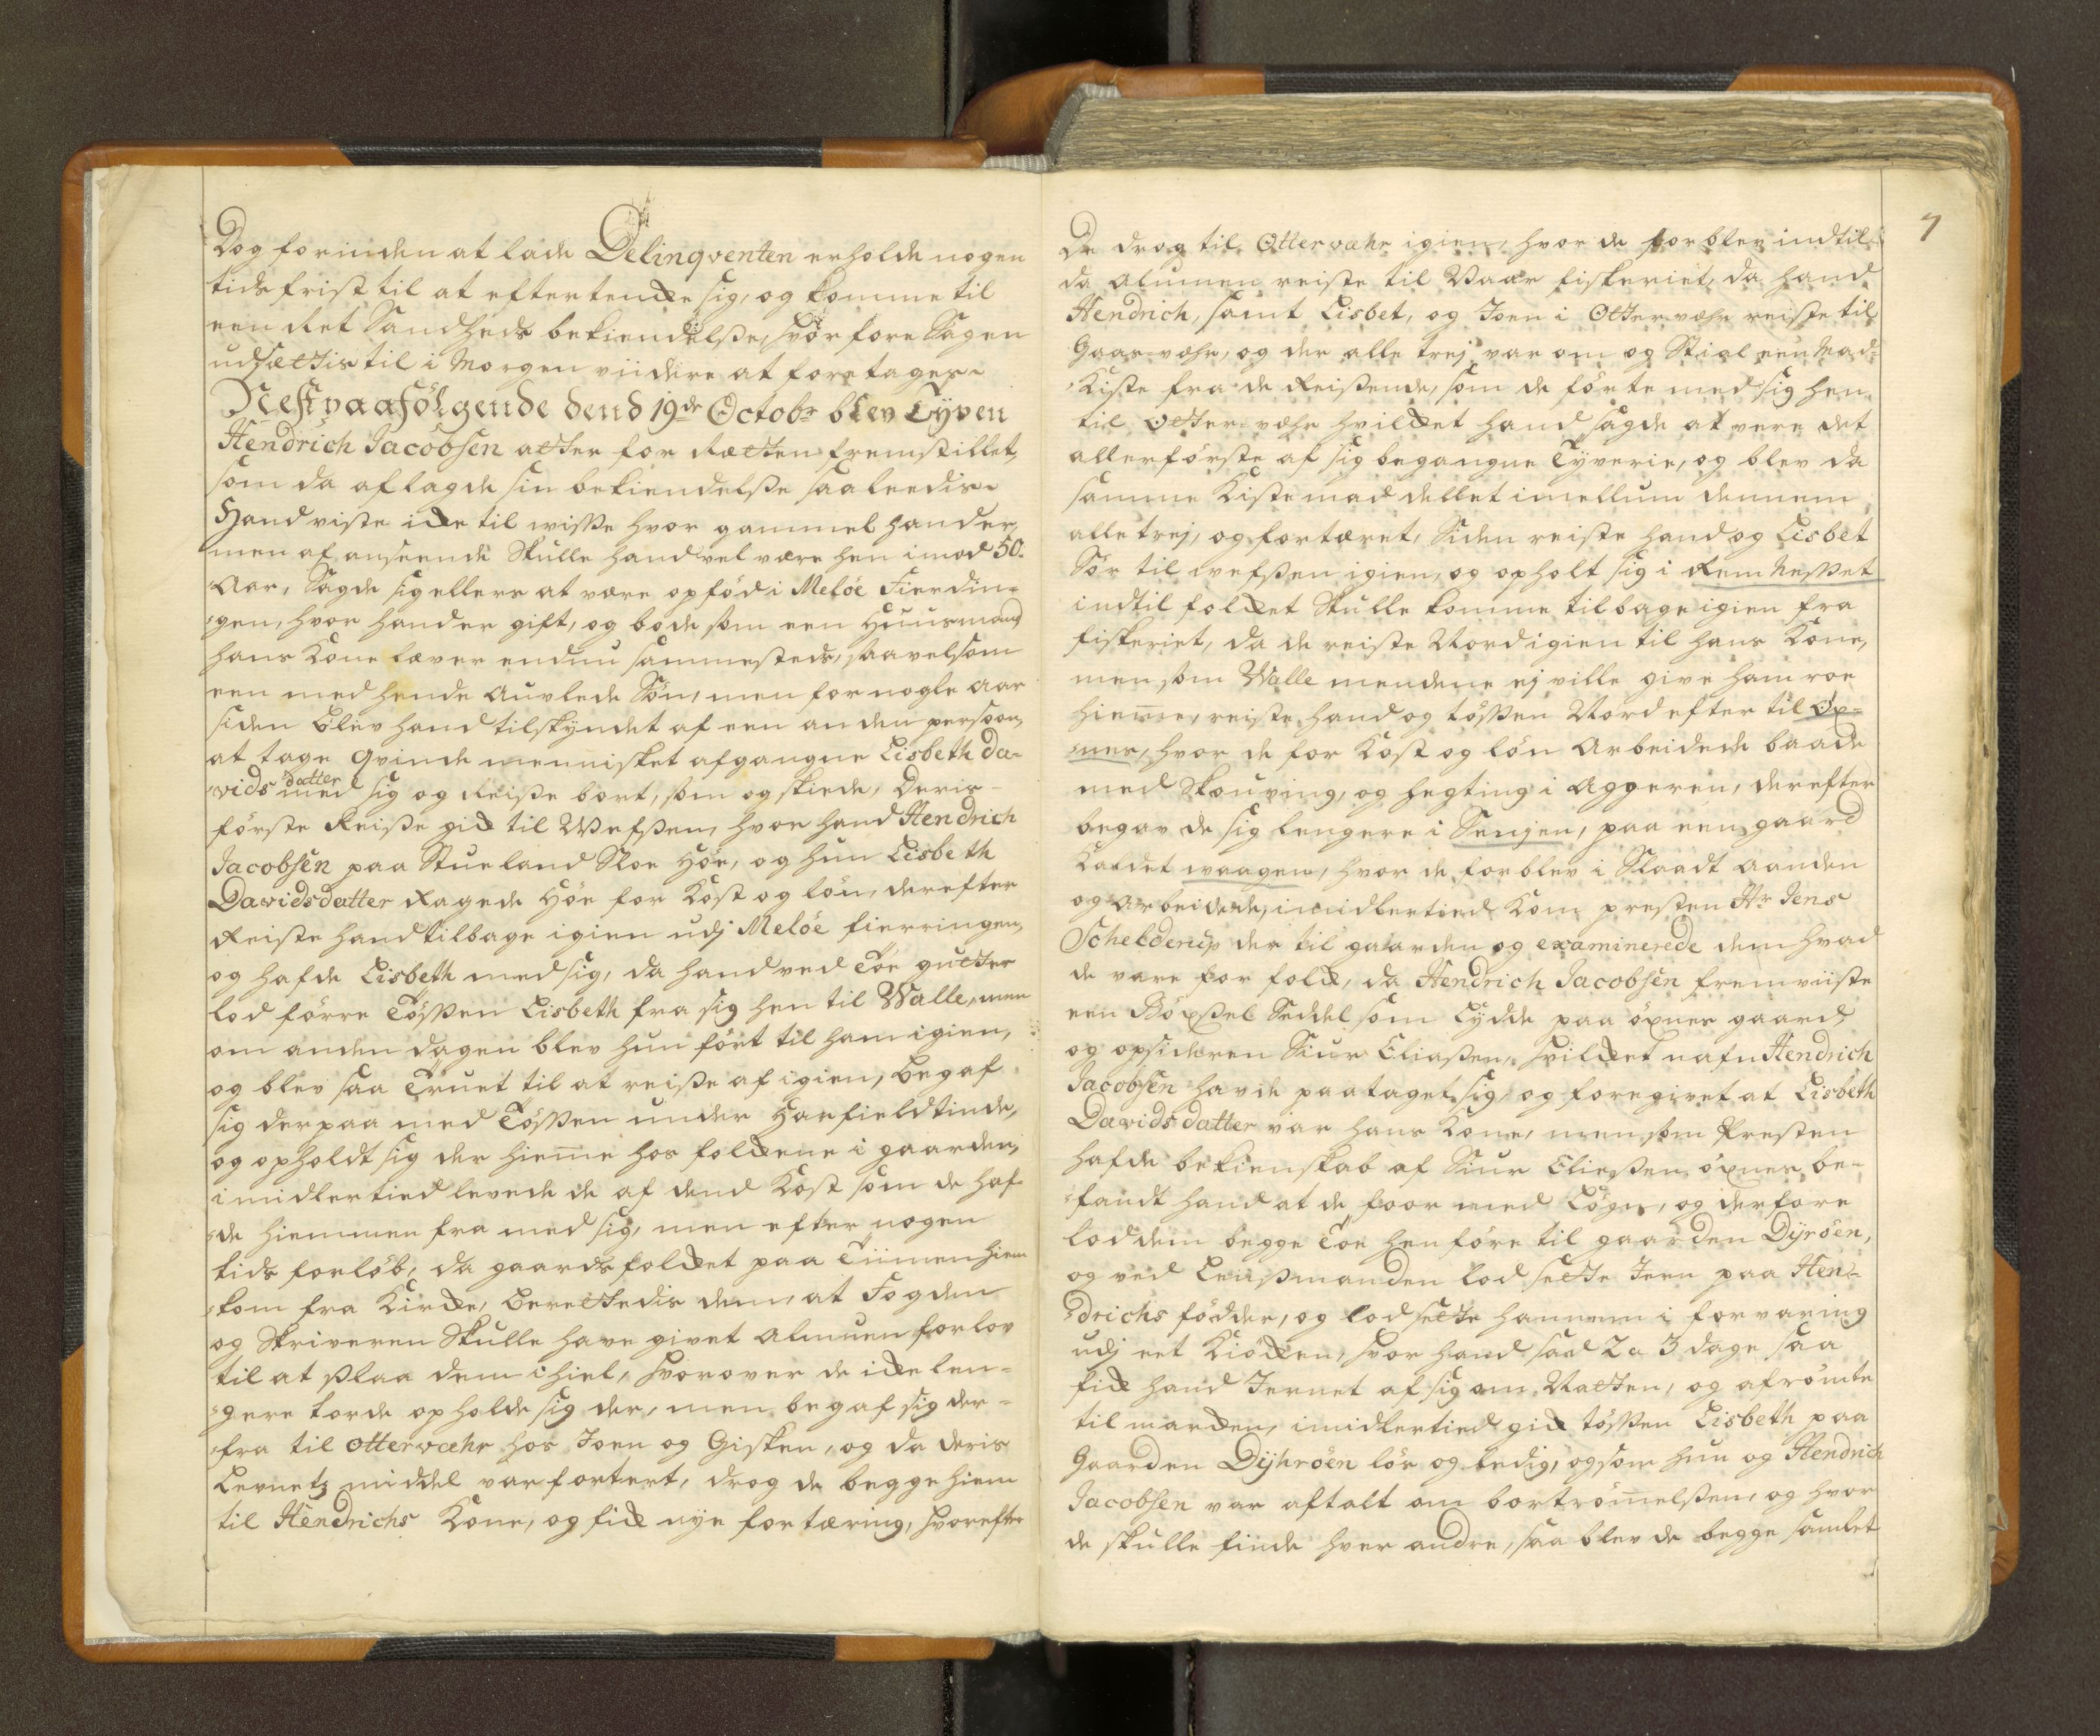 Dog forinden at lade Delinqventen erholde nogen
tids frist til at eftertencke sig, og komme til
een Ret Sandheds bekiendelße, hvorfore Sagen
udsættis til i Morgen viidere at foretages.
Nest paafölgende dend 19de Octobr blev Tyven
Hendrich Jacobsen atter for Rætten fremstillet,
som da aflagde sin bekiendelße saaleedis.
Hand viste icke til wisse hvor gammel hand er,
men af anseende Skulle hand vel være hen imod 50.
Aar, Sagde sig ellers at være opföd i Melöe Fierdin-
gen, hvor hand er gift, og bode som een Huusmand
hans Kone læver endnu sammesteds, saavelsom
een med hende Auvlede Sön, men for nogle Aar
siden blev hand tilskyndet af een anden persoon,
at tage qvinde mennisket afgangne Lisbeth Da-
vids datter med sig og Reise bort, som og skeede, Deris
förste Reise gick til Wefßen, hvor hand Hendrich
Jacobsen paa Stueland Sloe Höe, og hun Lisbeth
Davidsdatter Ragede Höe for Kost og lön, derefter
Reiste hand tilbage igien udj Melöe fierringen,
og hafde Lisbeth med sig, da hand ved Toe gutter
lod förre Tößen Lisbeth fra sig hen til Walle, men
om anden dagen blev hun fört til ham igien,
og blev saa Truet til at reise af igien, begaf
sig derpaa med Tößen under Harfieldtinde,
og opholdt sig der hieme hos folckene i gaarden,
imidlertied levede de af dend Kost som de haf-
de hiemmen fra med sig, men efter nogen
tids forlöb, da gaards folcket paa Tiimen hiem
kom fra Kircke, berettedis dem, at Fogden
og Skriveren Skulle have givet Almuen forlov
til at slaa dem ihiel, hvorover de icke len-
gere torde opholde sig der, men begaf sig der-
fra til Otterværhr hos Joen og Gisken, og da deris
Levnetz middel var fortert, drog de begge hiem
til Hendrichs Kone, og fick nye fortæring, hvorefter
7
De drog til Otterwæhr igien, hvor de forblev indtil
da Almuen reiste til Vaar fiskeriet, da hand
Hendrich, samt Lisbet, og Joen i Otterwæhr reiste til
Gaaswæhr, og der alle trej var om og Stial een Mad-
Kiste fra de Reißende, som de förte med sig hen
til Otterwæhr hvilcket hand sagde at vere det
allerförste af sig begangne Tyverie, og blev da
samme Kiste mad deelet imellum dennem
alle trej, og fortæret, Siden reiste hand og Lisbet
Sör til Wefßen igien, og opholt sig i Remneßet
indtil folcket Skulle komme tilbage igien fra
fiskeriet, da de reiste Nord igien til hans Kone,
men som Walle mendene ej ville give ham roe
hieme, reiste hand og tößen Nord efter til Öx-
nes, hvor de for Kost og lön Arbeidede baade
med Skouving, og hegting i Aggeren, derefter
begav de sig lengere i Senjen, paa een gaard
Kaldet waagen, hvor de forblev i Slaadt Aanden
og Arbeidede, imidlertied Kom presten Hr Jens
Schelderup der til gaarden og examinerede dem hvad
de vare for folck, da Hendrich Jacobsen fremviiste
een Böxßel Seddel som Lydde paa öxnes gaard,
og opsideren Siur Eliaßen, hvilcket nafn Hendrich
Jacobsen havde paataget sig, og foregivet at Lisbeth
Davidsdatter var hans Kone, men som Presten
hafde bekienskab af Siur Eliaßen öxnes, be-
fandt hand at de foor med Lögn, og derfore
lod dem begge Toe henföre til gaarden Dyröen,
og ved Lenßmanden lod sette Jern paa Hen-
drichs födder, og lod sette hannem i forvaring
udj eet Kiöcken, hvor hand sad 2 a 3 dage saa
fick hand Jernet af sig om Natten, og afrömte
til marcken, imidlertied gick tößen Lisbeth paa
Gaarden Dyhröen lös og ledig, og som hun og Hendrich
Jacobsen var aftalt om bortrömelßen, og hvor
de skulle finde hver andre, saa blev de begge samlet